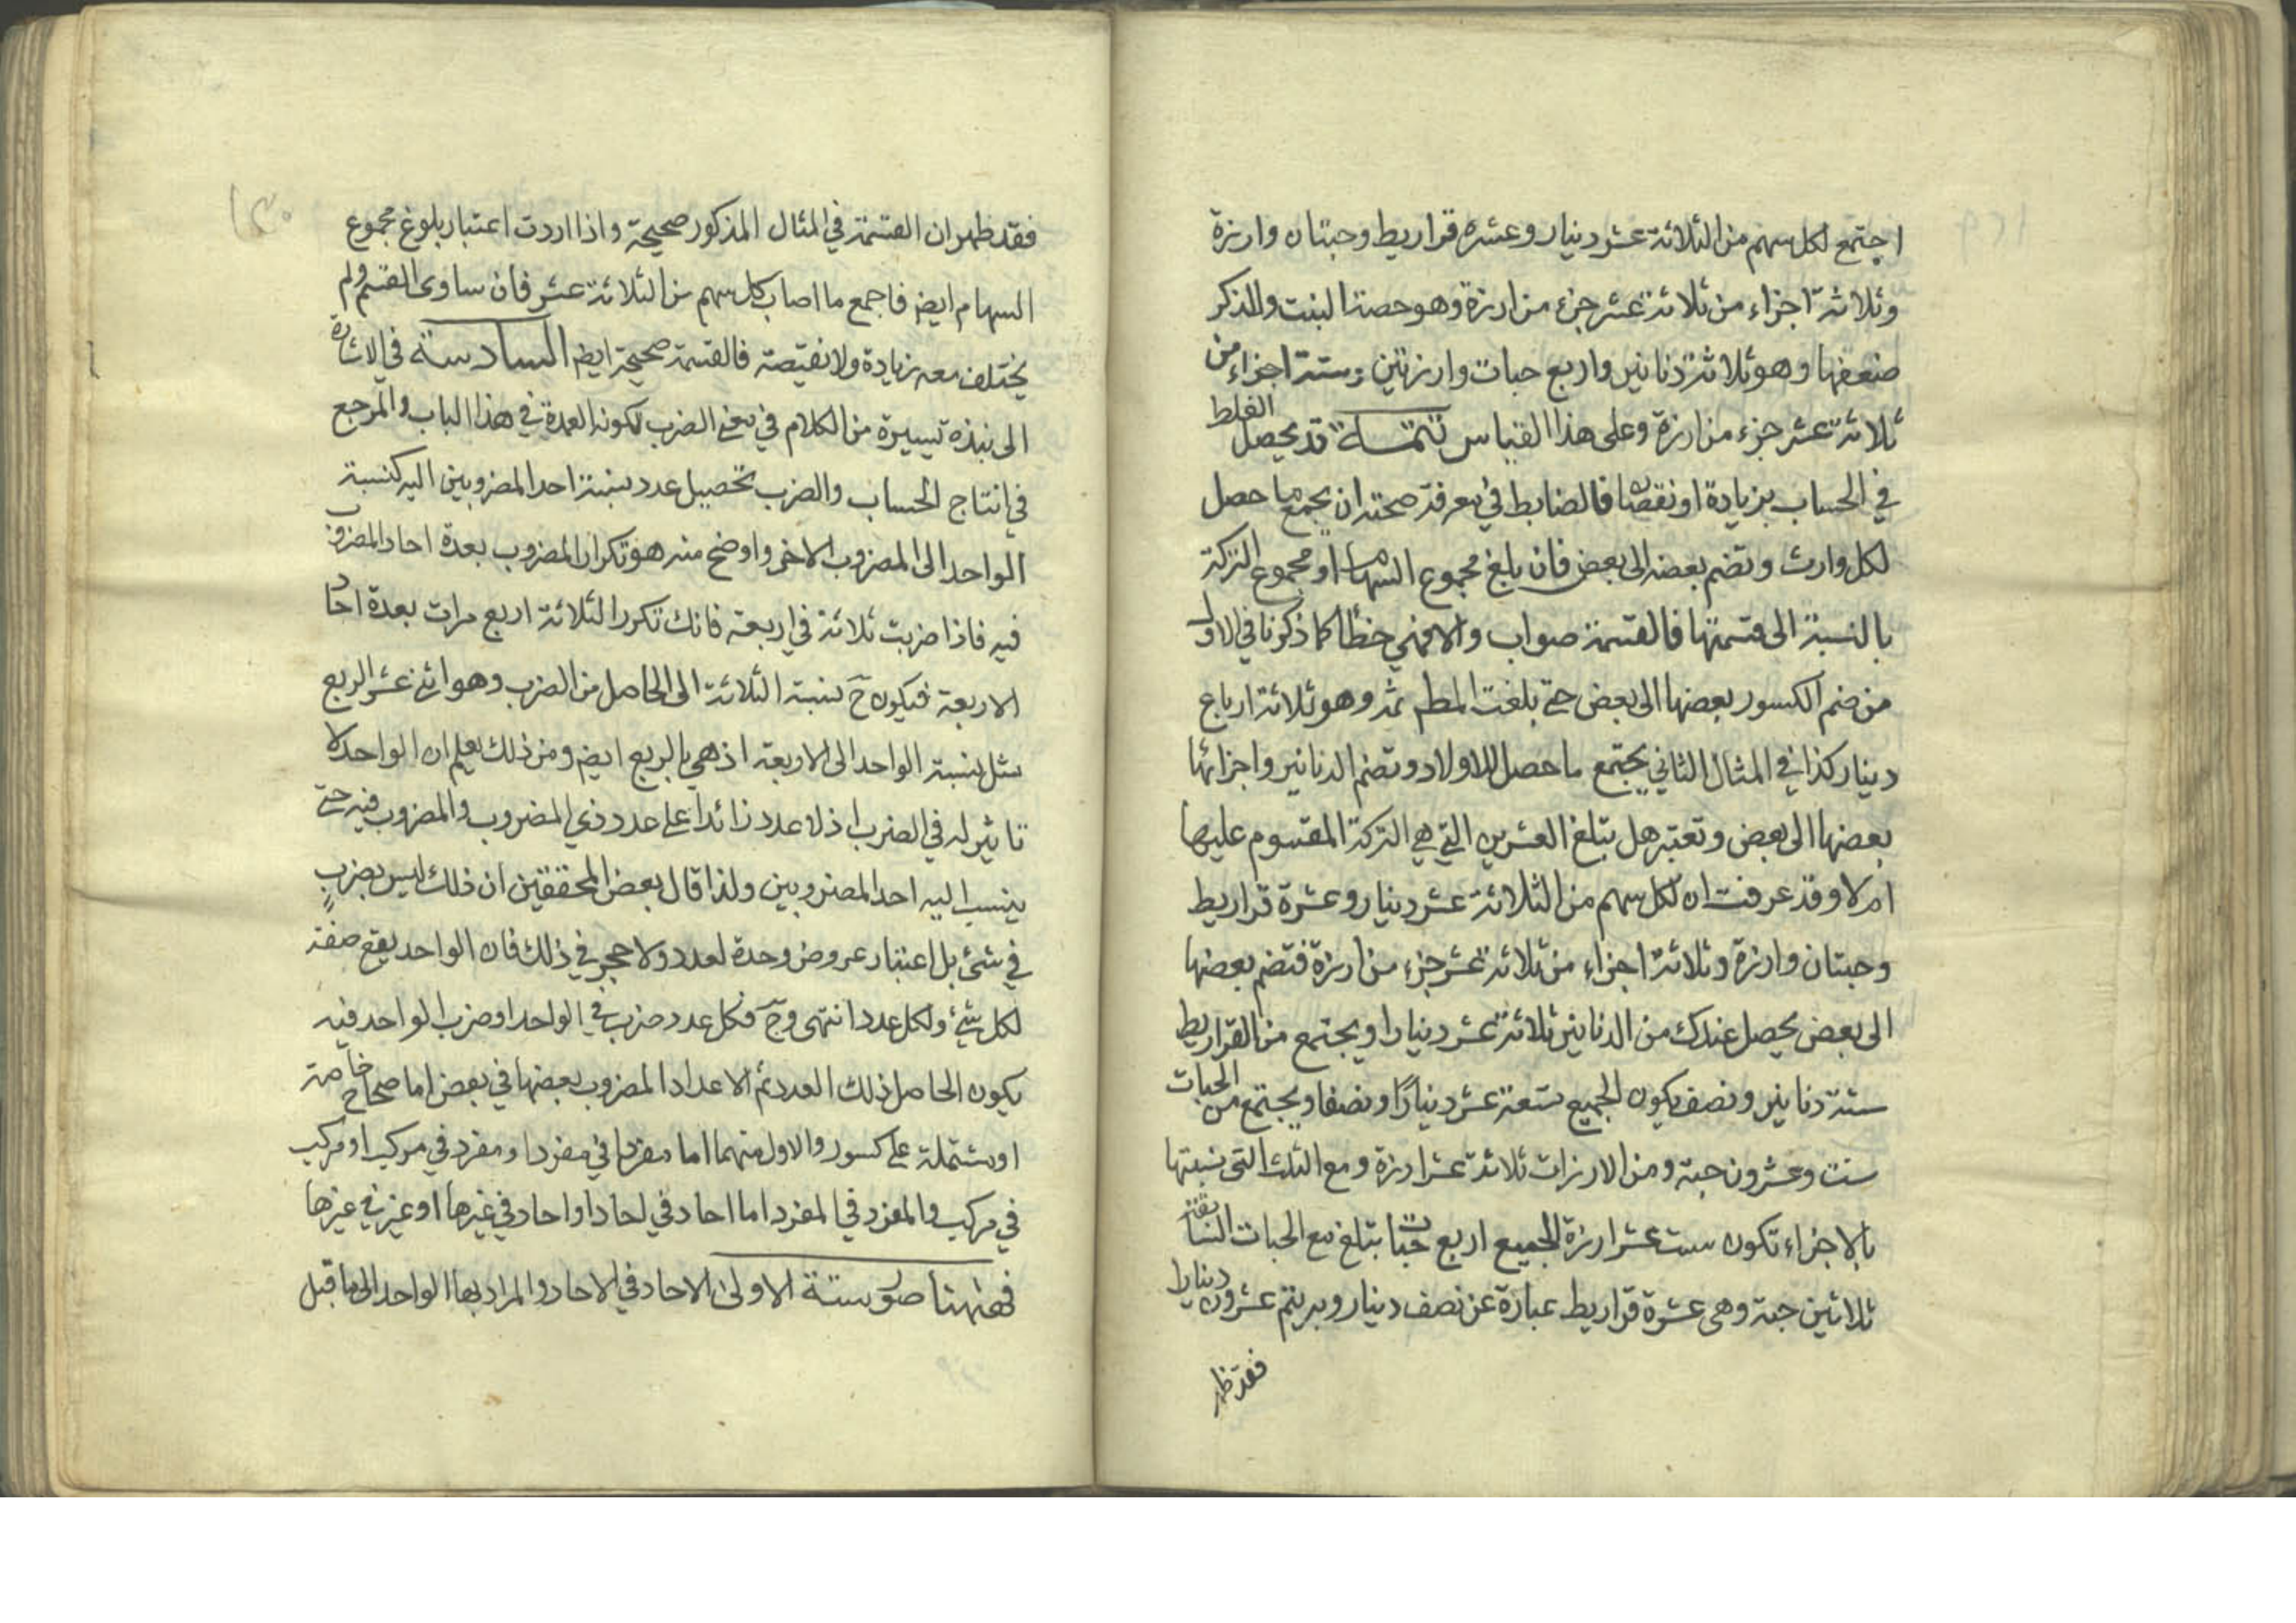 اجتمع لكل سهم من الثلاثة عشر دينار وعشرة قراريط وحبتان وارزة
وثلاثة اجزاء من ثلاثة عشر جزء من ارزة وهو حصة البنت وللذكر
ضعفها وهو ثلاثة دنانير واربع حبات وارزتين وستة اجزاء من
ثلاثة عشر جزء من ارزة وعلى هذا القياس تتمة قد يحصل الغلط
في الحساب بزيادة او نقصان فالضابط في معرفة صحته ان يجمع ما حصل
لكل وارث وتضم بعضه الى بعض فان بلغ مجموع السهام او مجموع التركة
بالنسبة الى قسمتها فالقسمة صواب والا فهي خطأ كما ذكرنا في الاول
من ضم الكسور بعضها الى بعض حتى بلغت المط ثمه وهو ثلاثة ارباع
دينار كذا في المثال الثاني يجتمع ما حصل للاولاد وتضم الدنانير واجزائها
بعضها الى بعض وتعتبر هل بتلغ العشرين التي هي التركة المقسوم عليها
ام لا وقد عرفت ان لكل سهم من الثلاثة عشر دينار وعشرة قراريط
وحبتان وارزة وثلاثة اجزاء من ثلاثة عشر جزء من ارزة فتضم بعضها
الى بعض يحصل عندك من الدنانير ثلاثة عشر دينارا ويجتمع من القراريط
ستة دنانير ونصف يكون الجميع تسعة عشر دينارًا ونصفا ويجتمع من الحبات
ست وعشرون حبة ومن الارزات ثلاثة عشر ارزة ومع الثلث التي نسبتها
بالاجزاء تكون ست عشر ارزة الجميع اربع حبات بتلغ مع الحبات السابقة
ثلاثين حبة وهي عشرة قراريط عبارة عن نصف دينار وبه يتم عشرون دينارا
فقد ظهر
فقد ظهر ان القسمة في المثال المذكور صحيحة واذا اردت اعتبار بلوغ مجموع
السهام ايض فاجمع ما اصاب كل سهم من الثلاثة عشر فان ساوى القسم ولم
يختلف معه زيادة ولا نقيصة فالقسمة صحيحة ايض السادسة في الاشارة
الى نبذه يسيرة من الكلام في معنى الضرب لكونه العمدة في هذا الباب والمرجع
في انتاج الحساب والضرب تحصيل عدد نسبة احد المضروبين اليه كنسبة
الواحد الى المضروب الاخر واوضح منه هو تكرار المضروب بعدة احاد المضروب
فيه فاذا ضربت ثلاثة في اربعة فانك تكرر الثلاثة اربع مرات بعدة احاد
الاربعة فيكون ح نسبة الثلاثة الى الحاصل من الضرب وهو اثنى عشر الربع
مثل نسبة الواحد الى الاربعة اذ هي بالربع ايض ومن ذلك يعلم ان الواحد لا
تاثير له في الضرب اذ لا عدد زائدا على عدد ذي المضروب والمضروب فيه حتى
ينسب اليه احد المضروبين ولذا قال بعض المحققين ان ذلك ليس بضربٍ
في شئ بل اعتبار عروض وحدة لعدد ولا حجر في ذلك فان الواحد يقع صفة
لكل شئ ولكل عدد انتهى وح فكل عدد ضرب في الواحد او ضرب الواحد فيه
يكون الحاصل ذلك العدد ثم الاعداد المضروب بعضها في بعض اما صحاح خاصة
او مشتملة على كسور والاول منهما اما مفرد في مفرد او مفرد في مركب او مركب
في مركب والمفرد في المفرد اما احاد في احاد او احاد في غيرها او غير في غيرها
فههنا صور ستة الاولى الاحاد في الاحاد والمراد بها الواحد الى ما قبل